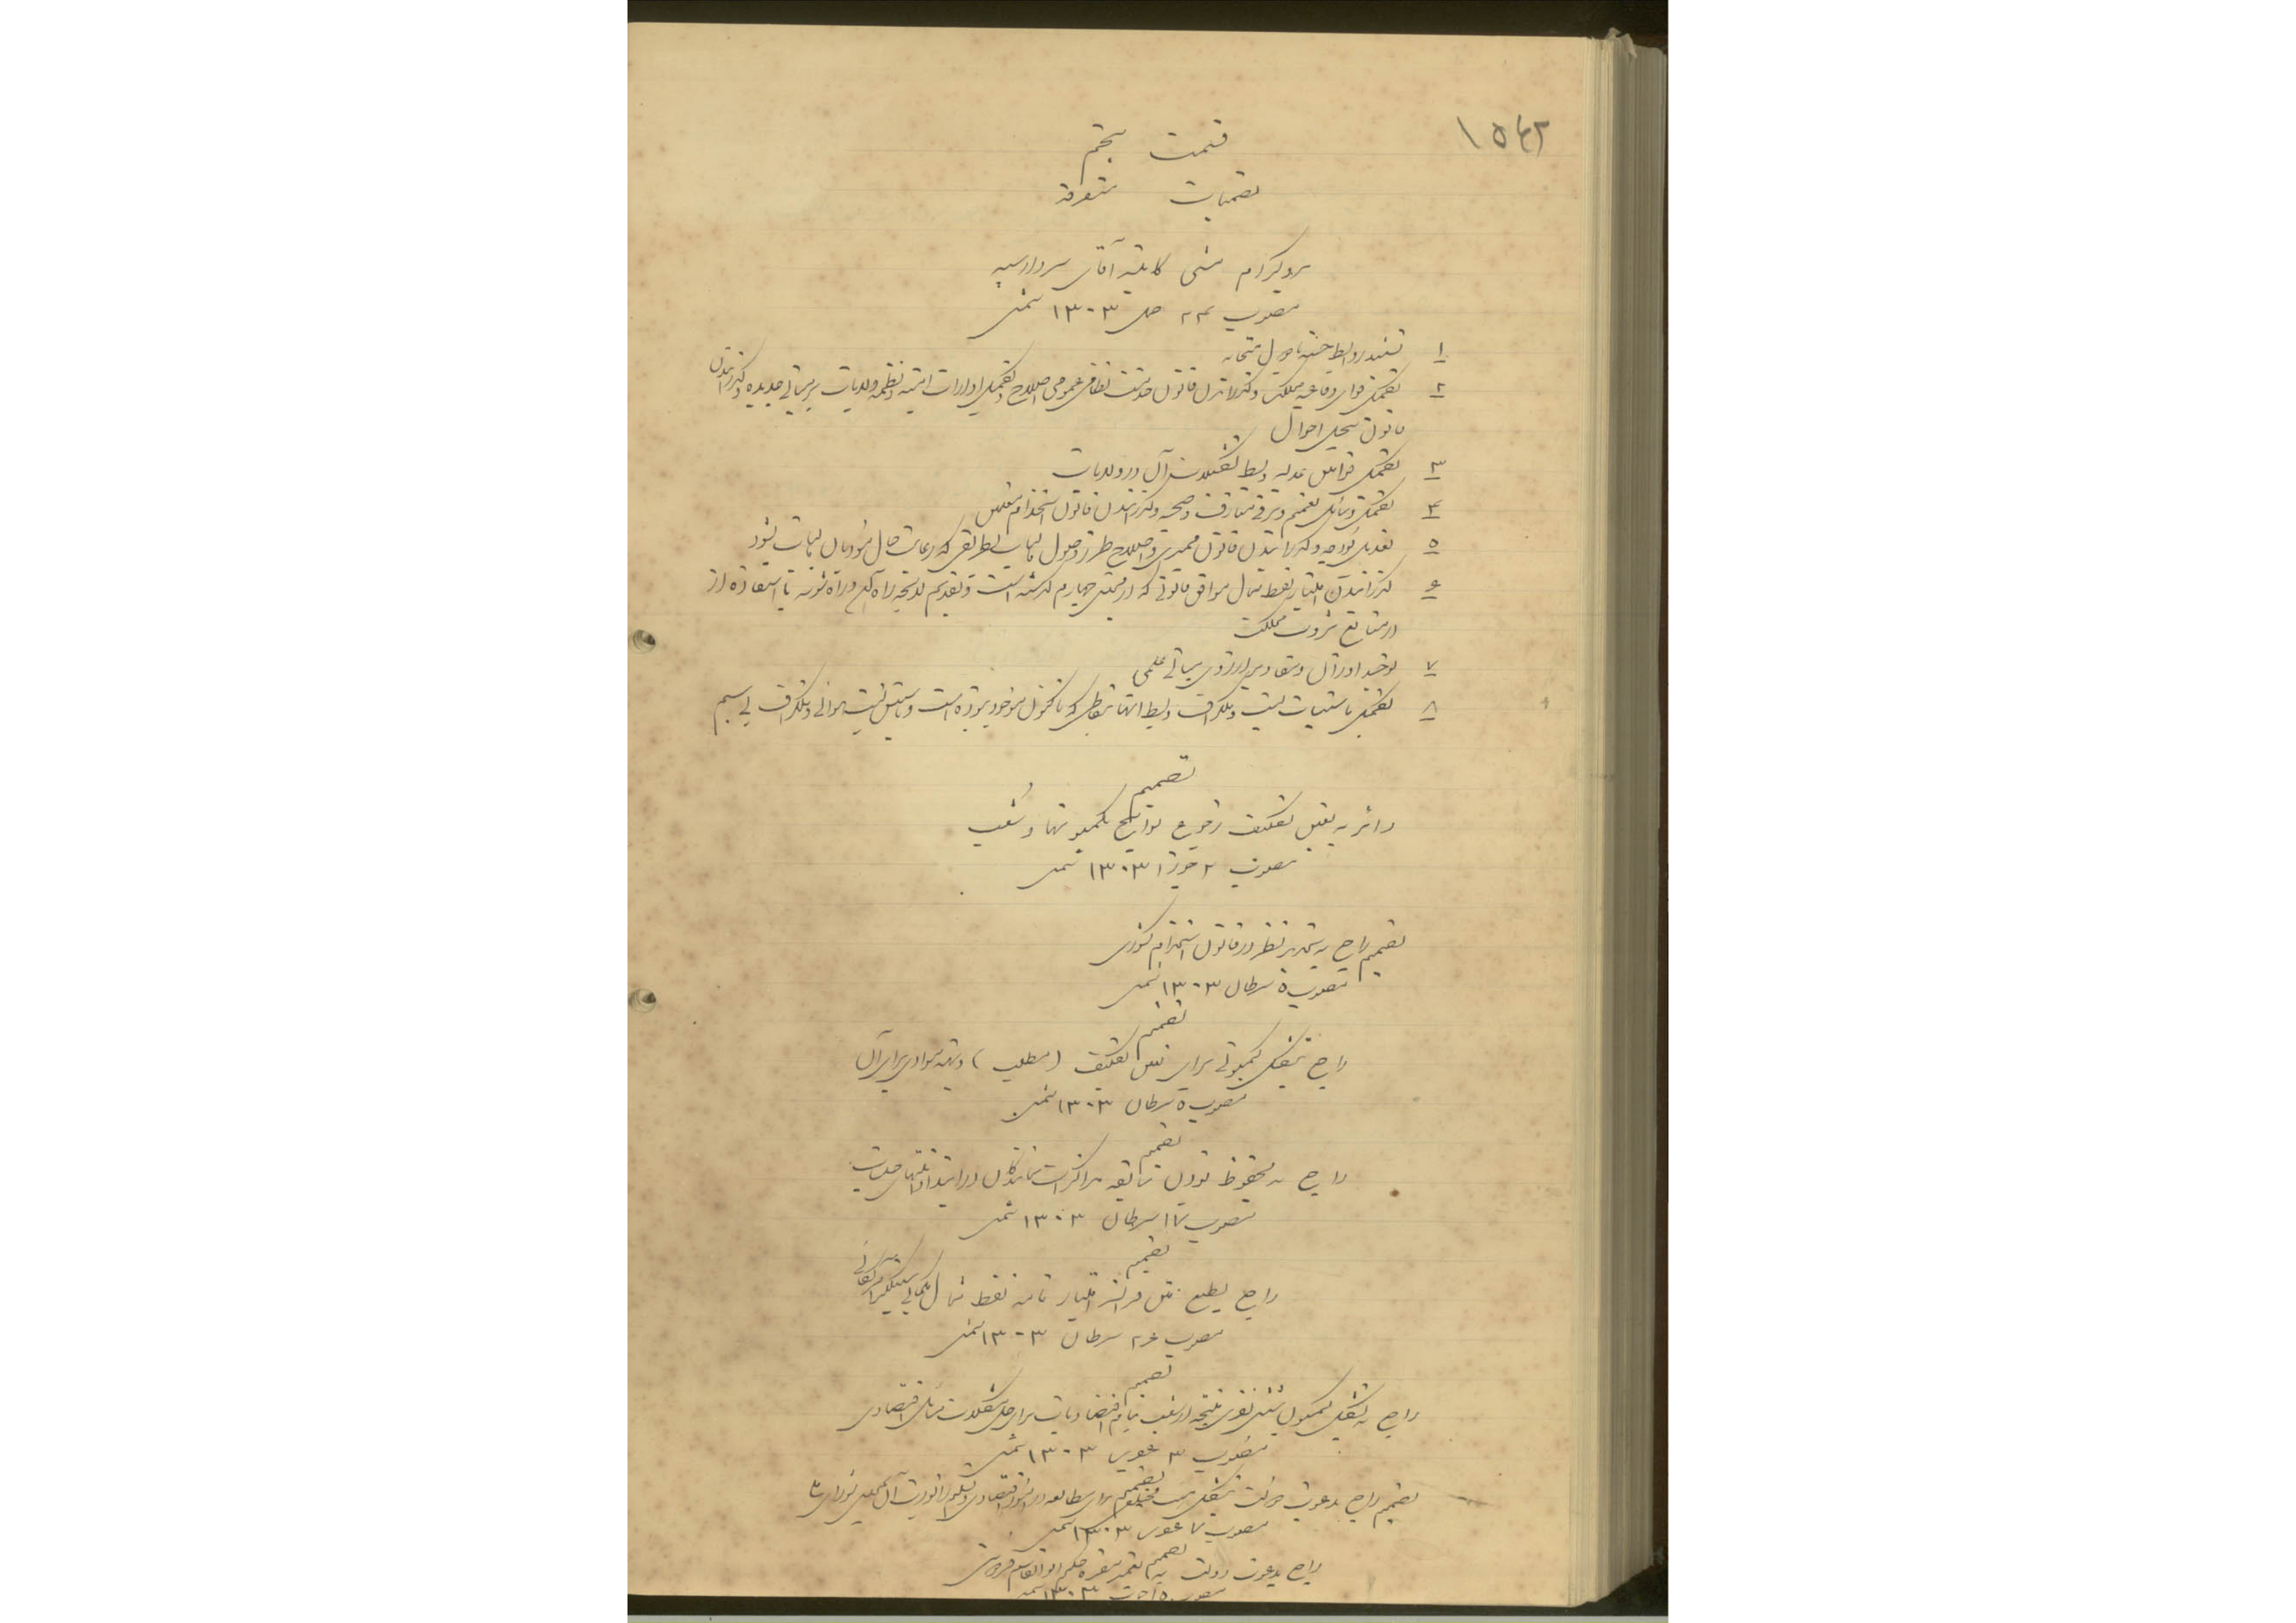 ۱۵۴۲
قسمت پنجم
تصمیمات متفرقه
پروگرام مشی کابینه آقای سردار سپه
مصوب ۲۴ حمل ۱۳۰۳ شمسی
۱ تشیید روابط حسنه با دول متحابه
۲ تکمیل قوای دفاعیه مملکت و گذراندن قانون خدمت نظام عمومی اصلاح و تکمیل ادارات امنیه و نظمیه ولایات بر مبانی جدیده و گذراندن
قانون سجل احوال
۳ تکمیل قوانین عدلیه و بسط تشکیلات آن در ولایات
۴ تکمیل وسائل تعمیم و ترقی معارف و صحیه و گذراندن قانون استخدام معلمین
۵ تعدیل بودجه و گذراندن قانون ممیزی و اصلاح طرز وصول مالیات بطریقی که رعایت حال مؤدیان مالیات بشود
۶ گذراندن امتیاز نفط شمال موافق قانونی که در مجلس چهارم گذشته است و تقدیم لایحه راه آهن و راه شوسه با استفاده از
از منابع ثروت مملکت
۷ توحید اوزان و مقادیر از روی مبانی علمی
۸ تکمیل تأسیسات پست و تلگراف و بسط آنها بنقاطی که تاکنون موجود نبوده است و تأسیس پست هوائی و تلگراف بی سیم
تصمیم
دائر به تعیین تکلیف رجوع لوایح بکمیسیونها و شعب
مصوب ۲ جوزا ۱۳۰۳ شمسی
تصمیم راجع به تجدید نظر در قانون استخدام کشوری
مصوب ۵ سرطان ۱۳۰۳ شمسی
تصمیم
راجع بتشکیل کمیسیونی برای تعیین تکلیف (مطلب) و تهیه موادی برای آن
مصوب ۵ سرطان ۱۳۰۳ شمسی
تصمیم
راجع به محفوظ بودن سابقه مذاکرات نمایندگان در ابتدا و انتهای جلسات
مصوب ۱۷ سرطان ۱۳۰۳ شمسی
تصمیم
راجع بطبع متن فرانسه امتیاز نامه نفط شمال بکمپانی سینکلر امریکائی
مصوب ۲۶ سرطان ۱۳۰۳ شمسی
تصمیم
راجع به تشکیل کمیسیون شش نفری منتخبه از شعب بنام اقتصادیات برای حل مشکلات مسائل اقتصادی
مصوب ۳ عقرب ۱۳۰۳ شمسی
تصمیم راجع بدعوت دولت بتشکیل برای مطالعه در امور اقتصادی و تسلیم راپورت آن بمجلس شورای ملی
مصوب ۷ عقرب ۱۳۰۳ شمسی
تصمیم
راجع بدعوت دولت به تعمیر مقبره حکیم ابوالقاسم فردوسی
مصوب ۱۳۰۳ شمسی